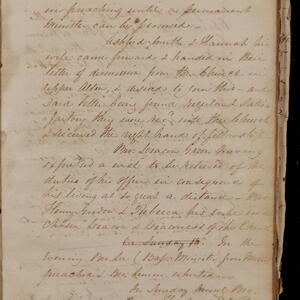 in preaching until a permanent
minister can be procured.
Smith & Hannah his
wife came forward & handed in their
letter of dismission from the Church in
Upper Alton, & desired to join this and
said letter being found regular & satis-
factory they were recd into the Church
& received the right hand of fellowship
Bro. Deacon Green having
expressed a wish to be relieved of the
duties of his office in consequence of
his living at so great a distance Bro
Henry & Rebecca his wife were
chosen Deacon & Deaconess of the Church
On Sunday In the
evening Bro Lee (Bap. Minister from
preached & Bro exhorted
On Sunday Bro.